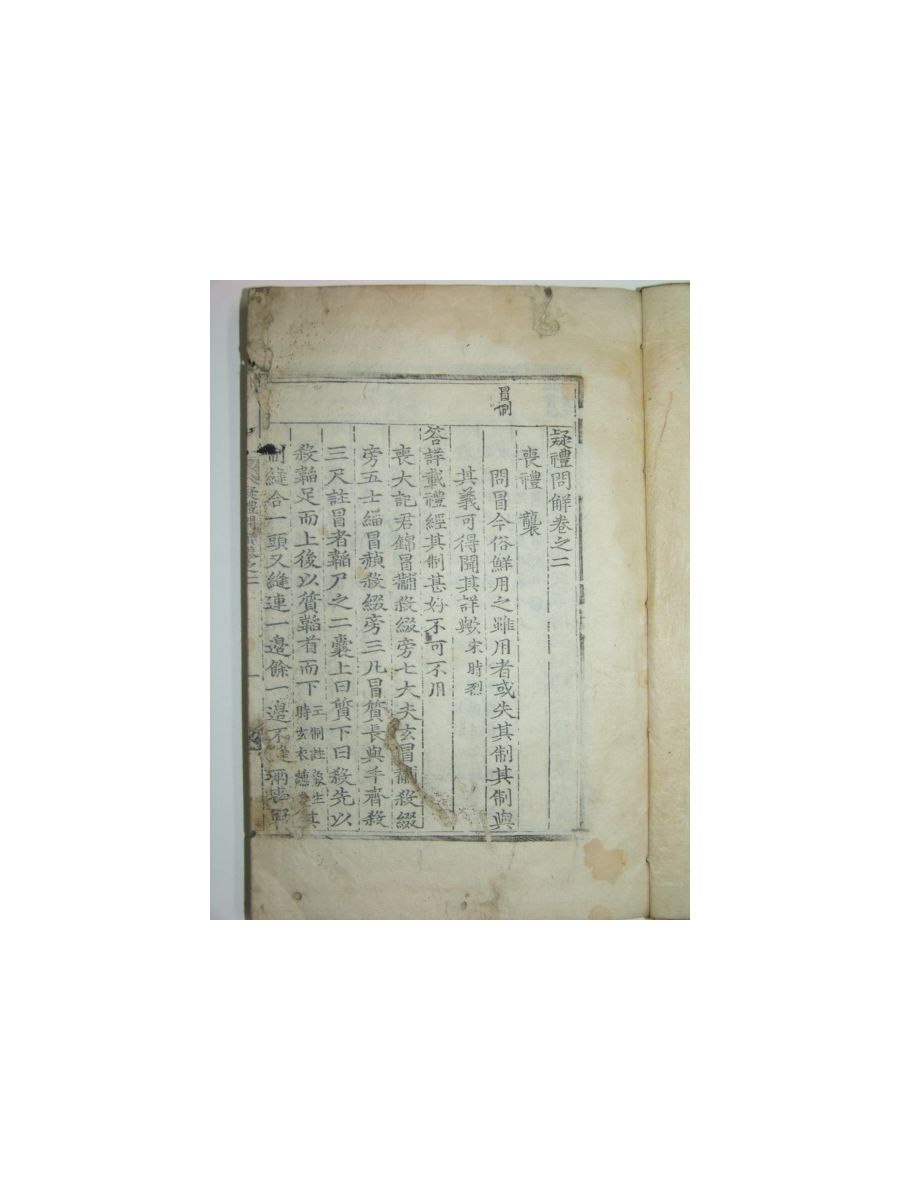 疑禮問解卷之二
喪禮 襲
冒制
問冒今俗鮮用之雖用者或失其制其制與
其義可得聞其詳歟 宋時烈
答詳載禮經其制甚好不可不用
喪大記君錦冒黼殺綴旁七大夫玄冒黼殺綴
旁五士緇冒赬殺綴旁三凡冒質長與手齊殺
三尺註冒者韜尸之二囊上曰質下曰殺先以
殺韜足而上後以質韜首而下 王制註象生
時玄衣纁 其
制縫合一頭又縫連一邊餘一邊不縫兩囊
疑禮問解卷之二
一